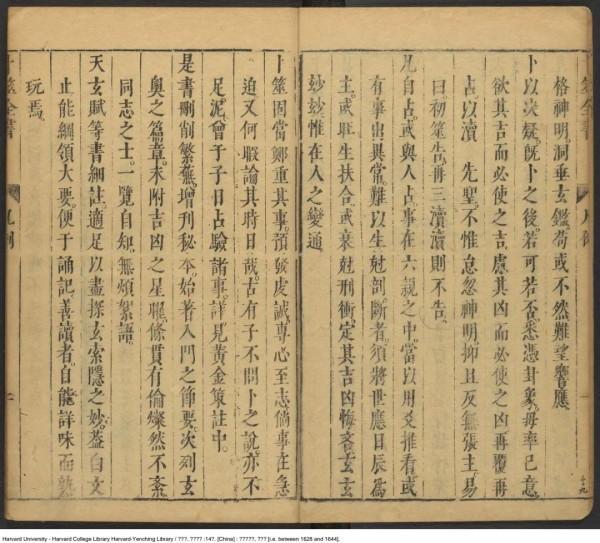 格神明洞垂玄鑑苟或不然難望響應
卜以决疑旣卜之後若可若否悉憑卦象毋率己意
欲其吉而必使之吉慮其凶而必使之凶再覆再
占以瀆 先聖不惟怠忽神明抑且反無張主易
曰初筮告再三瀆瀆則不告
凡自占或與人占事在六親之中當以用爻推看或
有事出異常難以生尅剖斷者須將世應日辰為
主或旺生扶合或衰尅刑衝定其吉凶悔吝玄玄
妙妙惟在人之變通
卜筮固當鄭重其事預發虔誠專心至志倘事在急
迫又何暇論其時日哉古有子不問卜之說亦不
足泥曾于子日占驗諸事詳見黃金策註中
是書刪削繁蕪增刊秘本始著入門之節要次列玄
奥之篇章末附吉凶之星曜條貫有倫燦然不紊
同志之士一覽自知無煩絮語
天玄賦等書細註適足以盡探玄索隱之妙葢白文
止能綱領大要便于誦記善讀者自能詳味而熟
玩焉
卜筮全書
凡例
二
Harvard University - Harvard College Library Harvard-Yenching Library / ???. ???? :147. [China] : ?????, ??? [i.e. between 1628 and 1644].